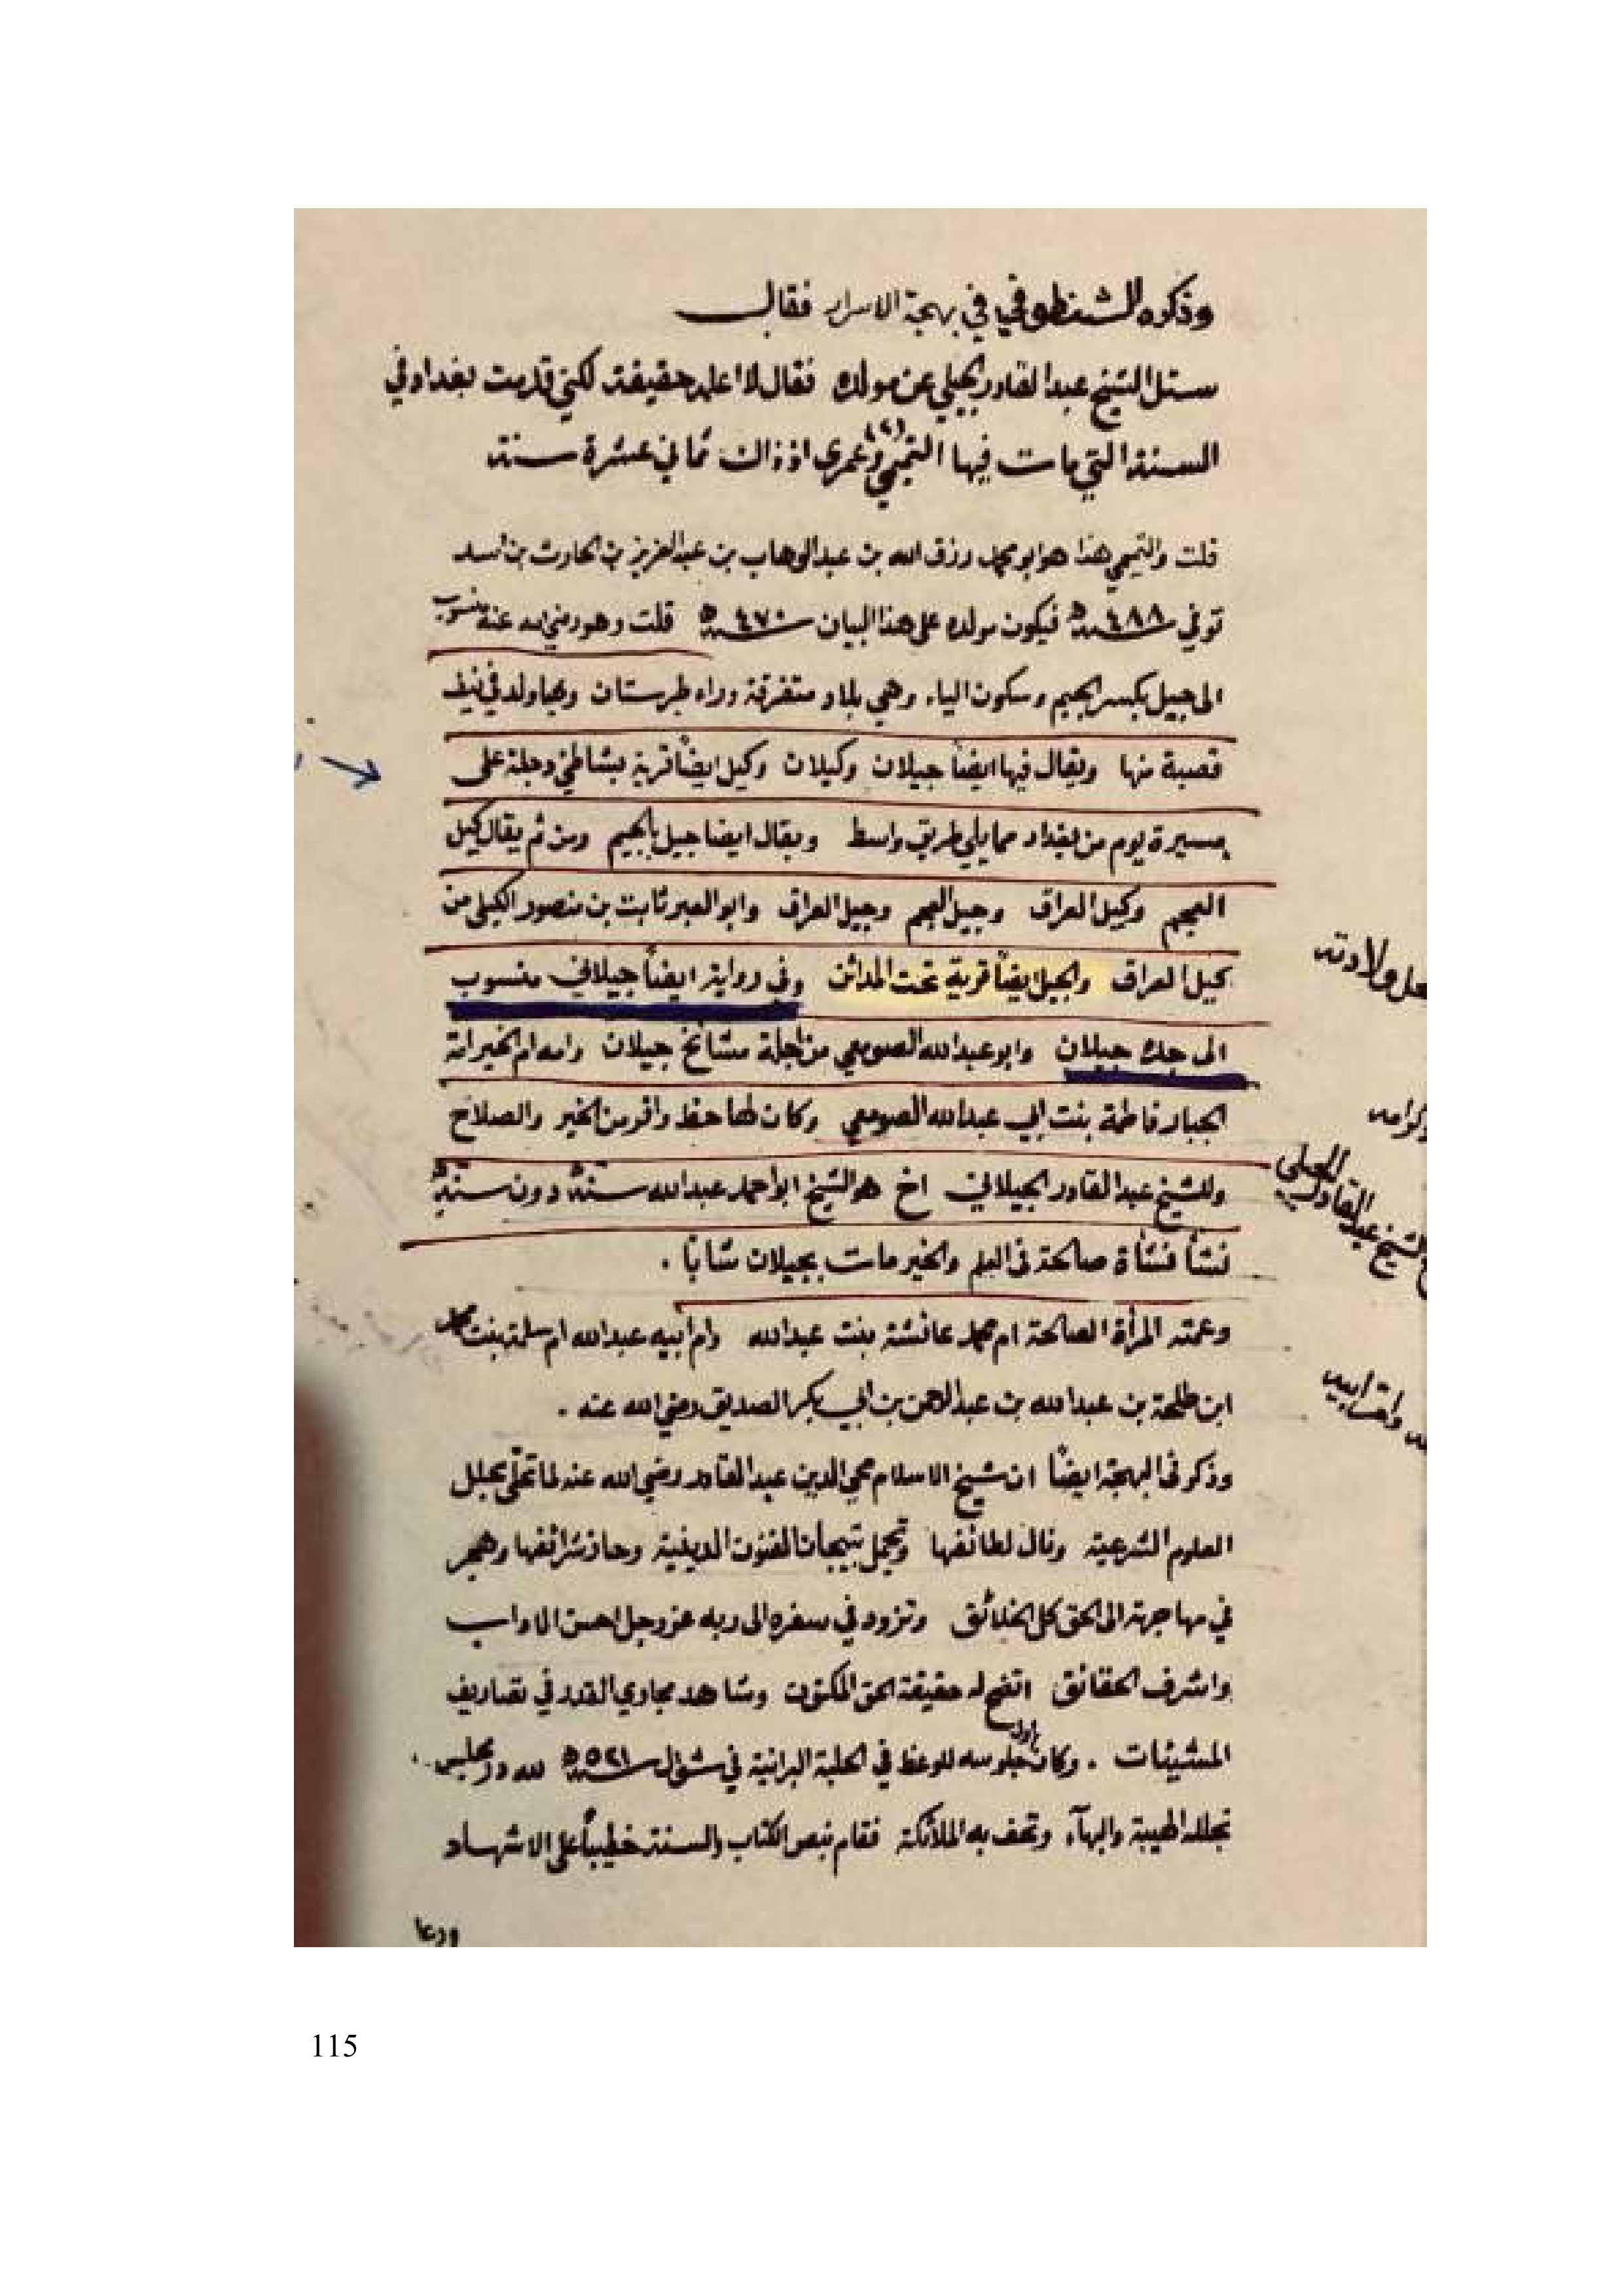 وذكره الشنطوفي في بهجة الاسرار فقال
سئل الشيخ عبد القادر الجيلي عن مولده فقال لا اعلم حقيقة لكني قدمت بغداد في
السنة التي مات فيها التميمي وعمري اذ ذاك ثماني عشرة سنة
قلت والتميمي هذا هو ابو محمد رزق الله بن عبد الوهاب بن عبد العزيز بن الحارث بن اسد
توفي سنة ٤٨٨ه فيكون مولده على هذا البيان سنة ٤٧٠ه قلت وهو رضي الله عنه منسوب
الى جيل بكسر الجيم وسكون الياء وهي بلاد متفرقة وراء طبرستان وبها ولد في نيف
قصبة منها ويقال فيها ايضاً جيلان وكيلان وكيل ايضاً قرية بشاطئ دجلة على
مسيرة يوم من بغداد مما يلي طريق واسط ويقال ايضا جيل بالجيم ومن ثم يقال كيل
العجم وكيل العراق وجيل العجم وجيل العراق وابو العبر ثابت بن منصور الكيلي من
كيل العراق والجيل ايضاً قرية تحت المدائن وفي رواية ايضاً جيلاني منسوب
الى جده جيلان وابو عبد الله الصومعي من اجلة مشائخ جيلان وامه ام الخير امة
الجبار فاطمة بنت ابي عبد الله الصومعي وكان لها حظ وافر من الخير والصلاح
وللشيخ عبد القادر الجيلاني اخ هو الشيخ ابو احمد عبد الله سنه دون سنه
نشأ نشأة صالحة في العلم والخير مات بجيلان شابًا .
وعمته المرأة الصالحة ام محمد عائشة بنت عبد الله وام ابيه عبد الله ام سلمة بنت محمد
ابن طلحة بن عبد الله بن عبد الرحمن بن ابي بكر الصديق رضي الله عنه .
وذكر في البهجة ايضًا ان شيخ الاسلام محي الدين عبد القادر رضي الله عنه لما تحلى بحلل
العلوم الشرعية ونال لطائفها وتجمل بتيجان الفنون الدينية وحاز شرائفها وهجر
في مهاجرته الى الحق كل الخلائق وتزود في سفره الى ربه عز وجل احسن الاداب
واشرف الحقائق اتضح له حقيقة الحق المكنون وشاهد مجاري القدر في تصاريف
المشيئات . وكان اول جلوسه للوعظ في الحلبة البرانية في شوال سنة ٥٢١ه لله در مجلس .
تجلله الهيبة والبهآء وتحف به الملائكة فقام بنص الكتاب والسنة خطيباً على الاشهاد
ودعا
ولادته
الشيخ عبد القادر الجيلي
115